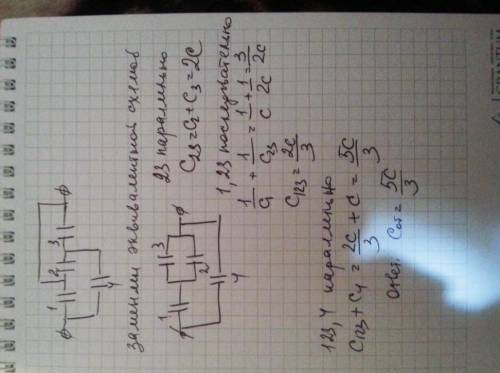 1 2 3
4
заменим эквивалентной схемой
1 3
2
4
23 параллельно
C₂₃ = C₂ + C₃ = 2C
1, 23 последовательно
1/C₁ + 1/C₂₃ = 1/C + 1/2C = 3/2C
C₁₂₃ = 2C/3
123, 4 параллельно
C₁₂₃ + C₄ = 2C/3 + C = 5C/3
Ответ: Cоб = 5C/3